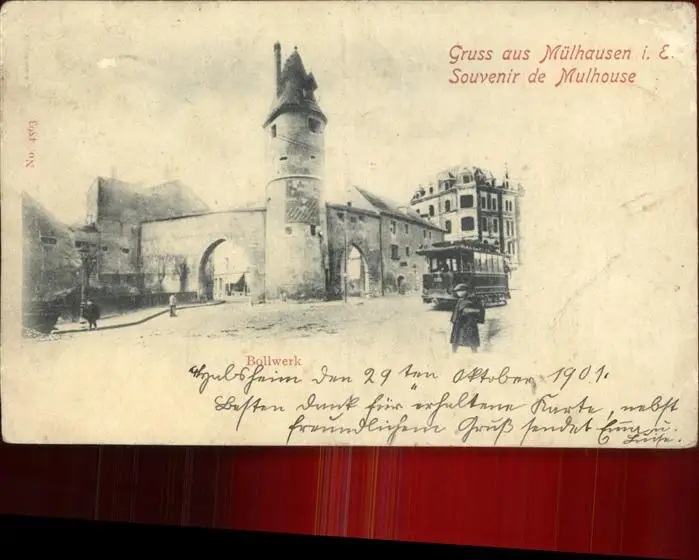 Gruss aus Mülhausen i. E.
Souvenir de Mulhouse
No. 4563
Bollwerk
den 29ten Oktober 1901.
Besten Dank für erhaltene Karte, nebst
freundlichem Gruß sendet Emma u.